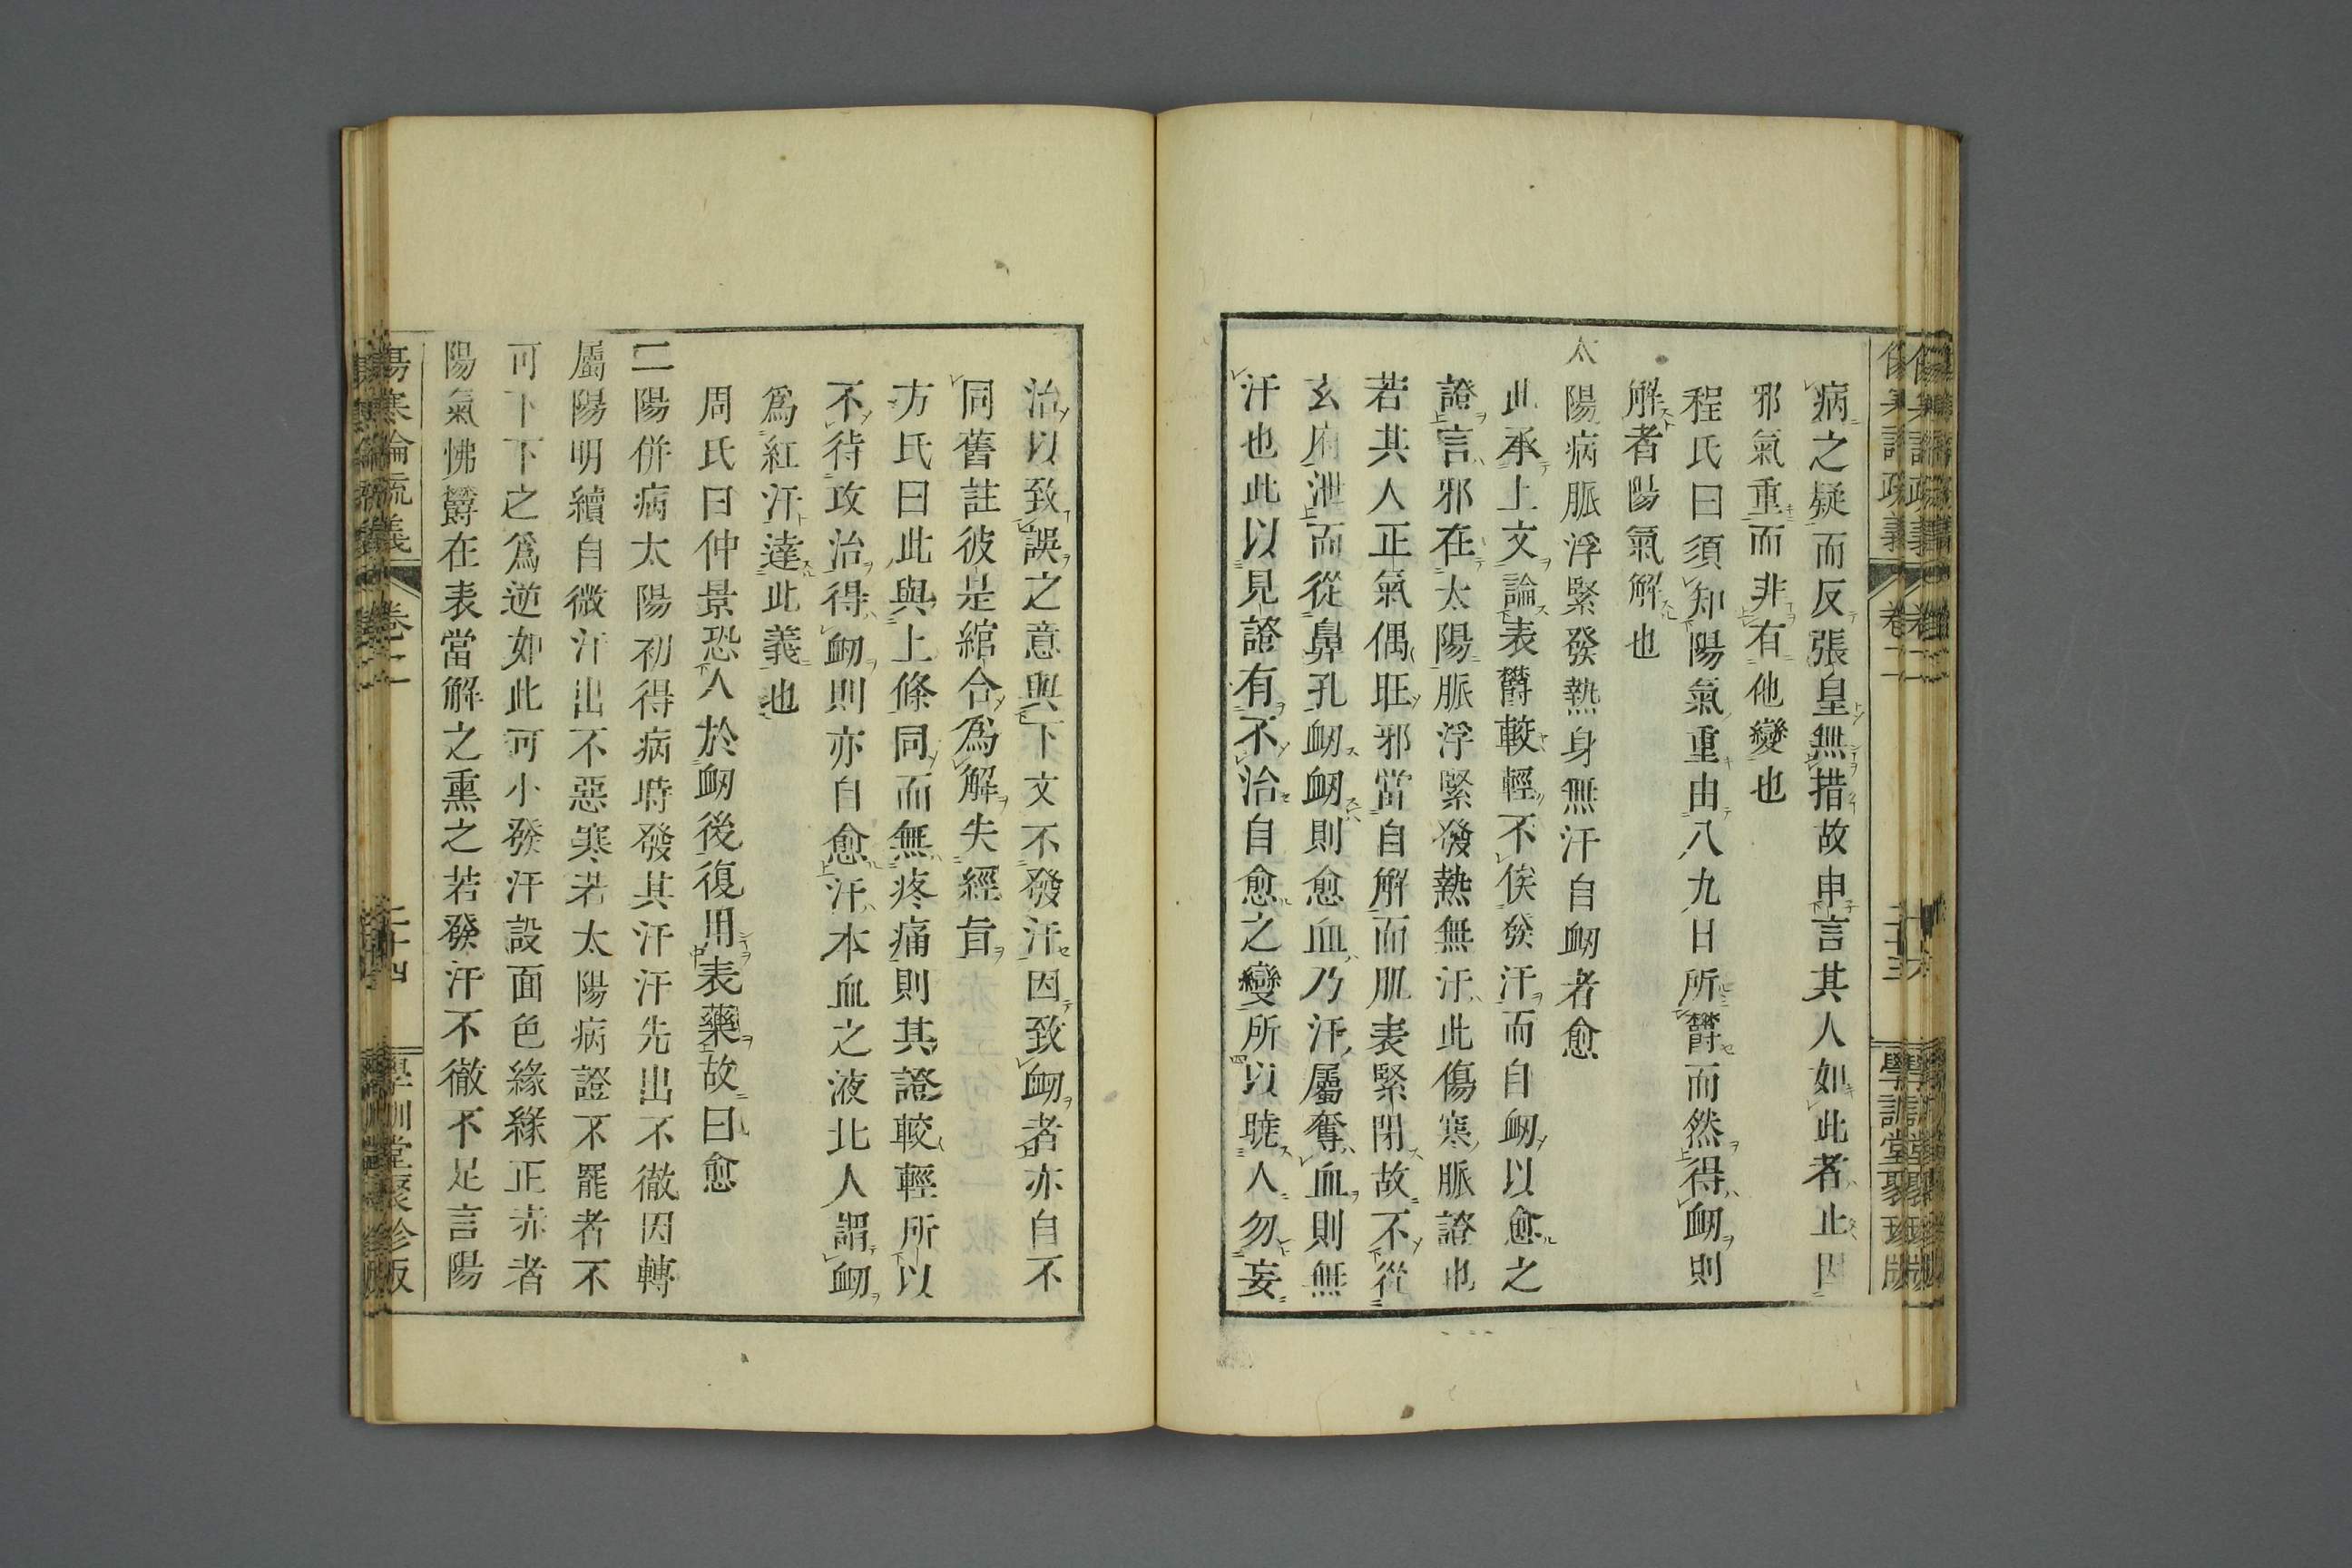 病之疑而反張皇無措故申言其人如此者止因
邪氣重而非有他變也
程氏曰須知陽氣重由八九日所欝而然得衂則
解者陽氣解也
太陽病脈浮緊發熱身無汗自衂者愈
此承上文論表欝較輕不俟發汗而自衂以愈之
證言邪在太陽脈浮緊發熱無汗此傷寒脈證也
若其人正氣偶旺邪當自解而肌表緊閉故不從
玄府泄而從鼻孔衂衂則愈血乃汗屬奪血則無
汗也此以見證有不治自愈之變所以曉人勿妄
治以致誤之意與下文不發汗因致衂者亦自不
同舊註彼是綰合為解失經旨
方氏曰此與上條同而無疼痛則其證較輕所以
不待攻治得衂則亦自愈汗本血之液北人謂衂
爲紅汗達此義也
周氏曰仲景恐人於衂後復用表藥故曰愈
二陽併病太陽初得病時發其汗汗先出不徹因轉
屬陽明續自微汗出不惡寒若太陽病證不罷者不
可下下之爲逆如此可小發汗設面色緣緣正赤者
陽氣怫欝在表當解之熏之若發汗不徹不足言陽
傷寒論疏義
卷二
二十四
學訓堂聚珍版